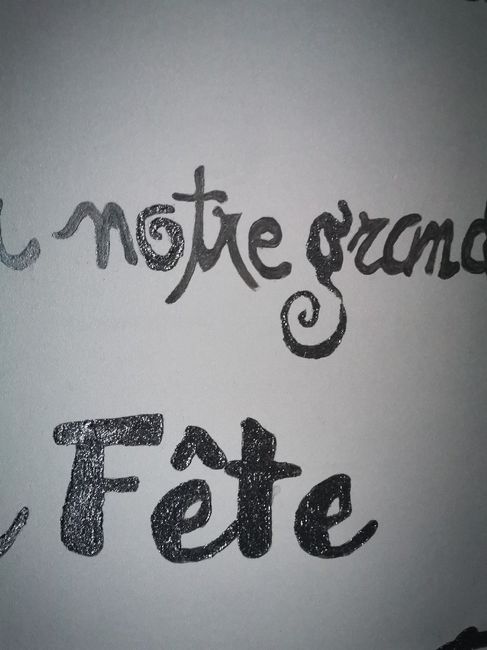 notre grand
Fête